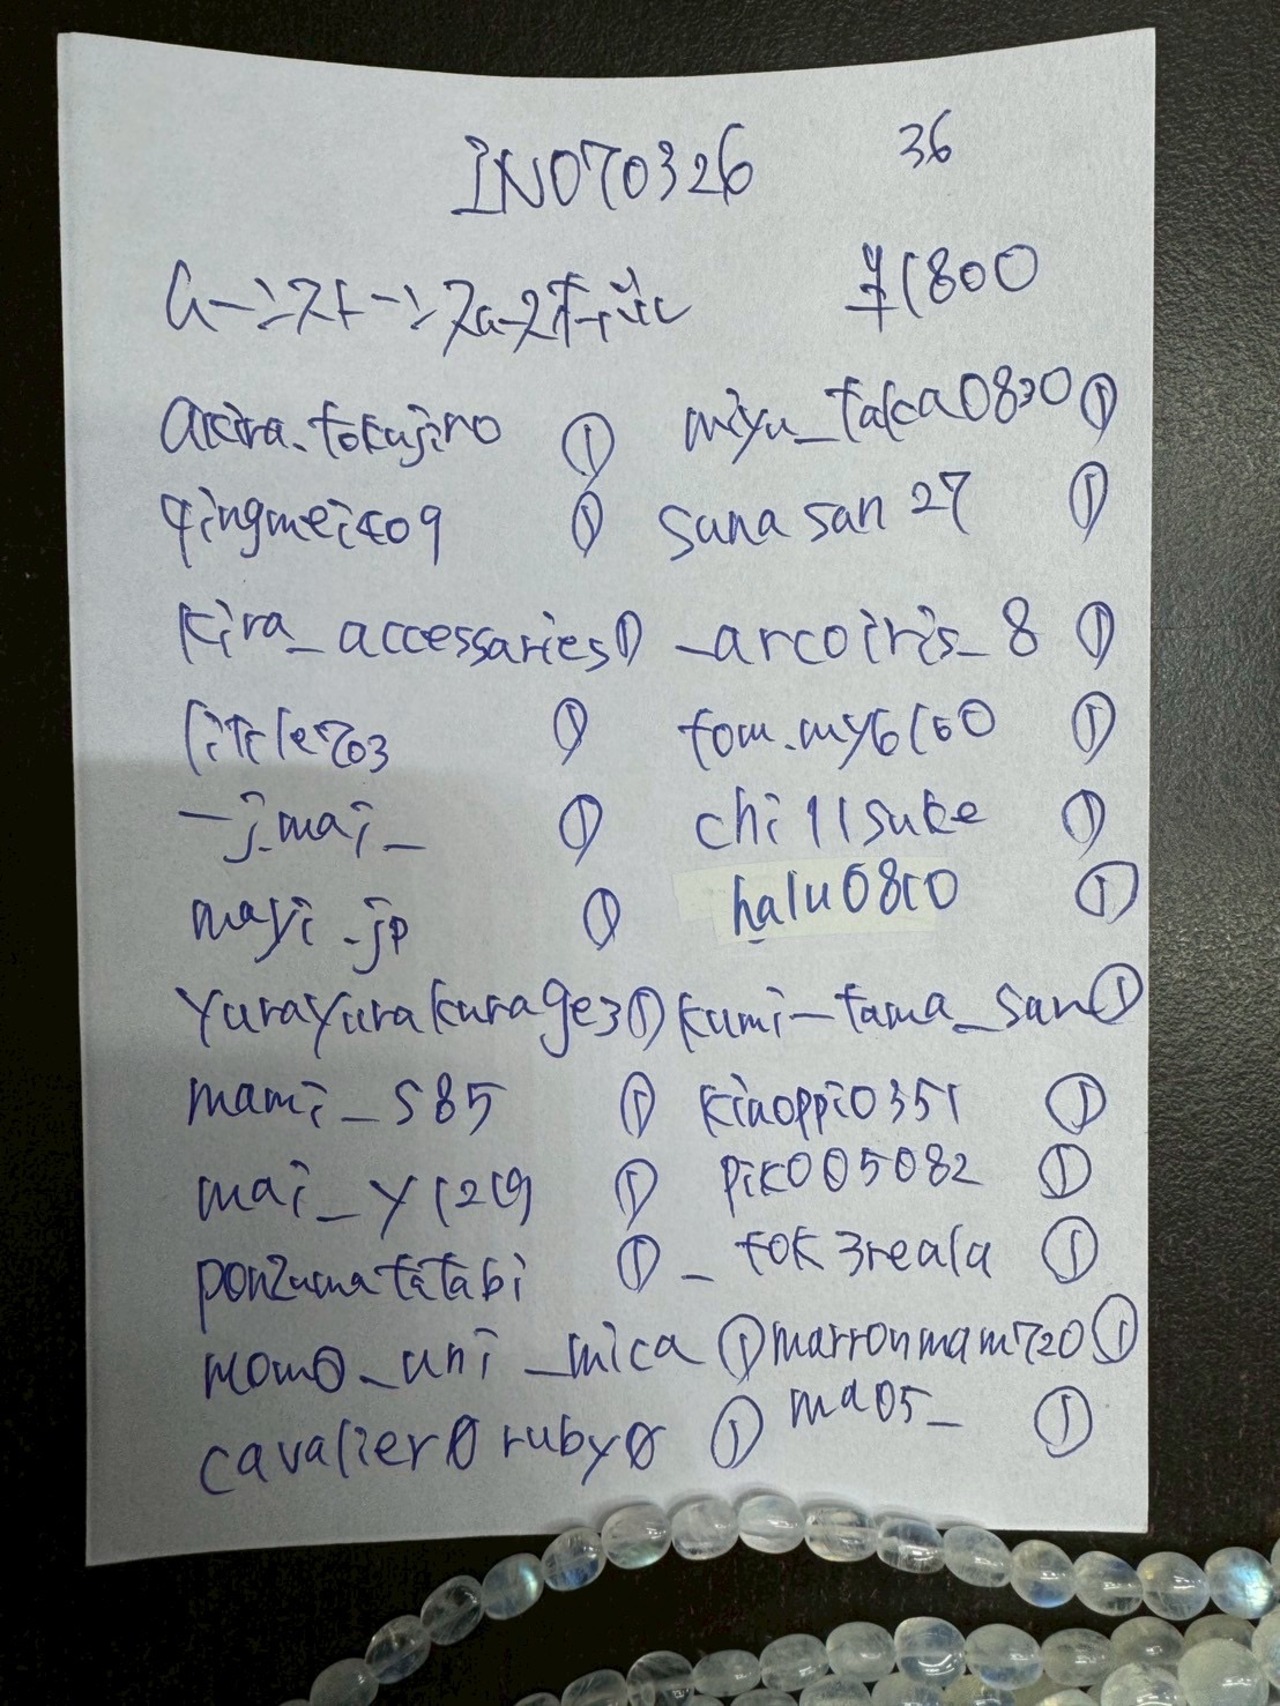 INO70326 36
ムーンストーン ¥1800
akira.tokujiro ① miyu_taka0830 ①
qingmei409 ① sanasan27 ①
kira_accessaries ① _arcoiris_8 ①
little703 ① tom.my6160 ①
_j.mai_ ① chi11suke ①
mayi_jp ① halu0810 ①
yurayurakurage3 ① kumi_tama_san ①
mami_s85 ① kiaoppi0351 ①
mai_y1219 ① piko05082 ①
ponzumatatabi ① _tok3reala ①
momo_uni_mica ① marronmam720 ①
cavalier0ruby0 ① ma05_ ①